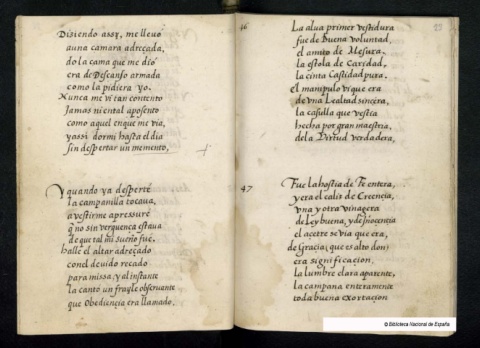 Diziendo assy, me lleuo
a una camara adreçada,
do la cama que me dio
era de Descanso armada
como la pidiera yo.
Nunca me vi tan contento
Jamas ni en tal aposento
como aquel en que me via,
y assi dormi hasta el dia
sin despertar un momento.
Y quando ya desperté
la campanilla tocaua,
a vestirme apressuré
q̃ no sin verguença estaua
de que tal mi sueño fue.
hallé el altar adreçado
con el deuido recado
para missa, y al instante
la cantó un frayle obseruante
que Obediençia era llamado.
46
La alua primer vestidura
fue de Buena voluntad,
el amito de Mesura.
la estola de Caridad,
la cinta Castidad pura.
El manipulo vi que era
de vna Lealtad sinçera,
la casulla que vestia
hecha por gran maestria,
de la Virtud verdadera,
47
Fue la hostia de Fe entera,
y era el caliz de Creençia,
vna y otra vinagera
de Ley buena, y de Jnoçençia
el acetre se via que era,
de Graçia, que es alto don:
era significaçion,
la lumbre clara aparente,
la campana enteramente
toda buena exortaçion
© Biblioteca Nacional de España